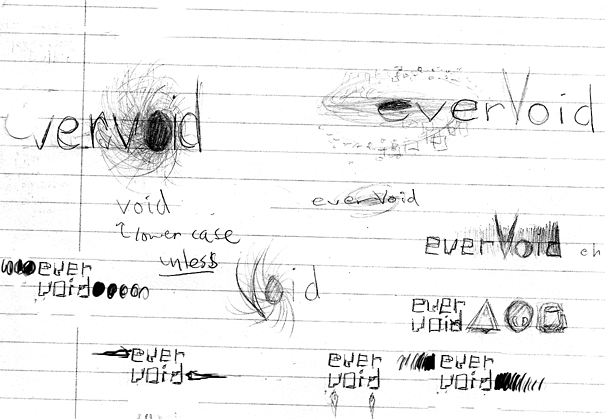 evervoid
everVoid
void
lower case
unless
everVoid
everVoid ch
ever
void
void
ever
void
ever
void
ever
void
ever
void